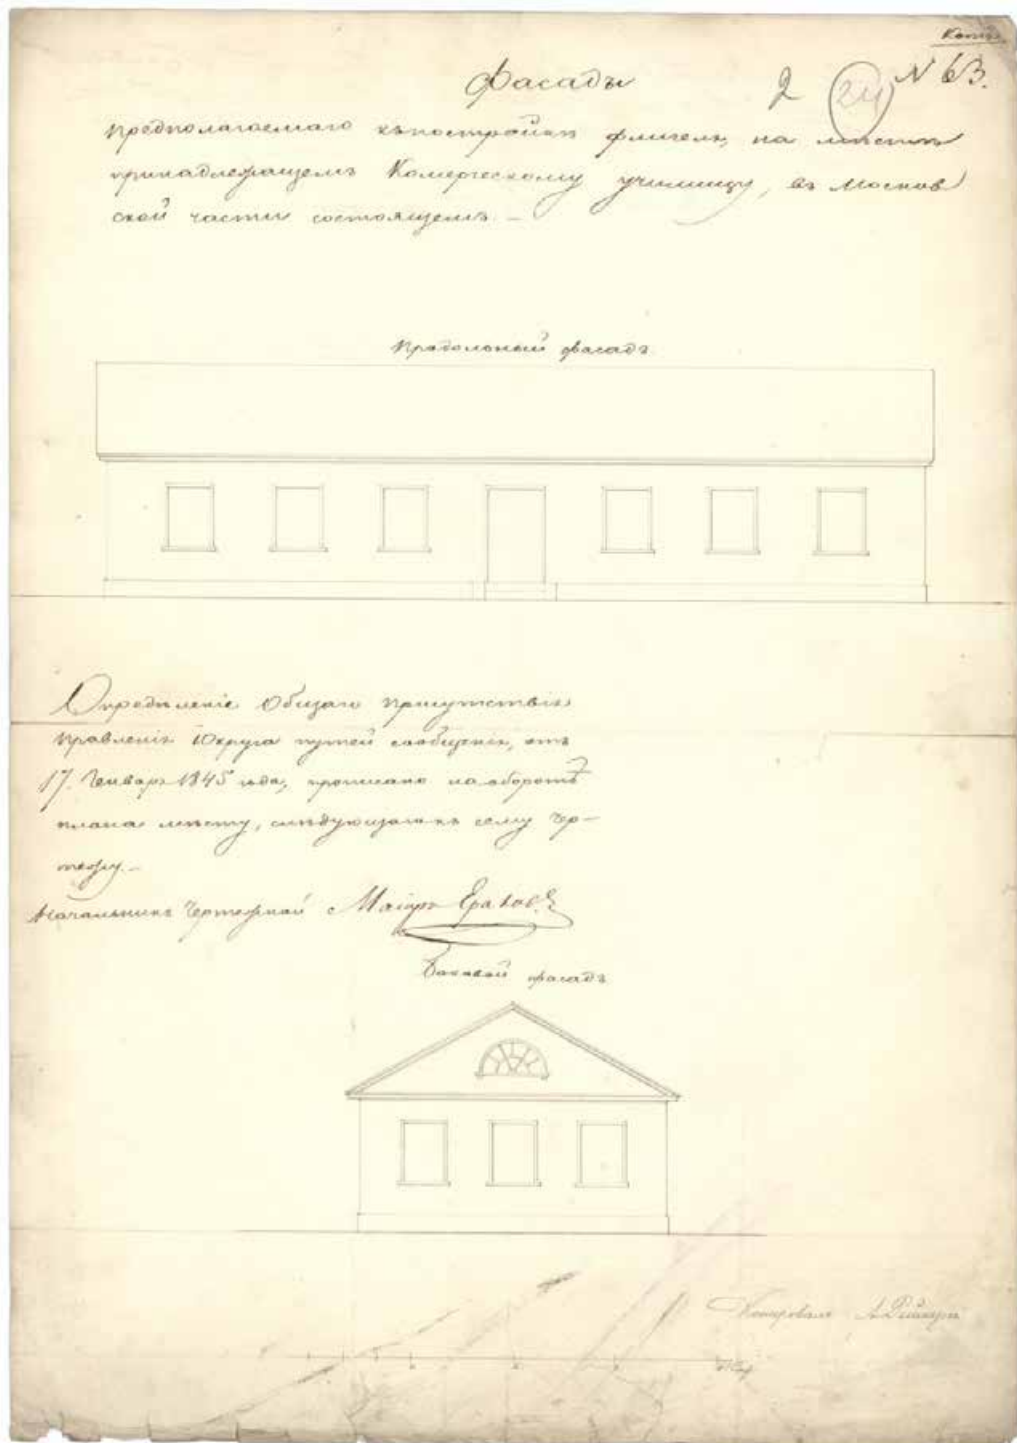 Копія
2 24 N 63.
Фасады
предполагаемаго къ постройкѣ флигеля, на мѣстѣ
принадлежащемъ Комерческому училищу, въ Москов
ской части состоящемъ. —
Продольный фасадъ.
Опредѣленіе Общаго Присутствія
Правленія Округа путей сообщенія, отъ
17. Генваря 1845 года, прописано на оборотѣ
плана мѣсту, слѣдующаго къ сему чер-
тежу. —
Начальникъ Чертежной Маіоръ
Боковой фасадъ.
Копировалъ А.